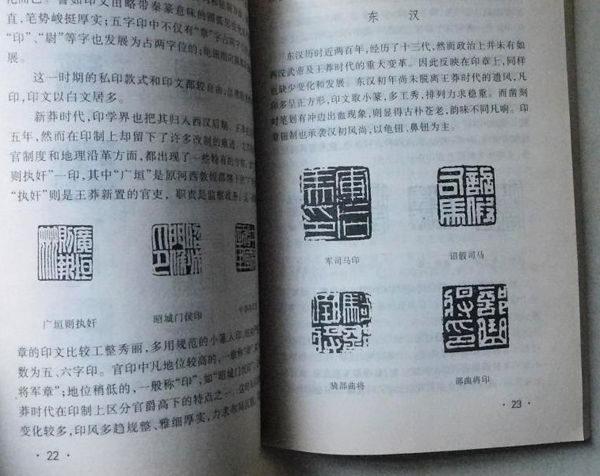 直，笔势峻挺厚实；五字印中不仅有“章”
“印”、“尉”等字也发展为占两字位的；
展。
这一时期的私印款式和印文都较自由
印，印文以白文居多。
新莽时代，印学界也把其归入西汉后期
五年，然而在印制上却留下了许多改制的
官制度和地理沿革方面，都出现了一些特有的
则执奸”一印，其中“广垣”是原河西
“执奸”则是王莽新置的官吏，职责是监察
广垣则执奸
昭城门侯印
章的印文比较工整秀丽，多用规范的小篆入印
数为五、六字印。官印中凡地位较高的，一般称“章”
将军章”；地位稍低的，一般称“印”，如“昭城门
莽时代在印制上区分官爵高下的特点之一
变化较多，印风多趋规整、雅细厚实，力求
· 22 ·
东 汉
东汉历时近两百年，经历了十三代，然而政治上并未有如
西汉武帝及王莽时代的重大变革。因此反映在印章上，同样
也缺少变化和发展。东汉初年尚未脱离王莽时代的遗风，凡
印多呈正方形，印文取小篆，多工秀，排列力求稳重。而凿刻
时笔则有冲边出血现象，则显得古朴苍老，韵味不同凡响。印
钮制也承袭汉初风尚，以龟钮、鼻钮为主。
军司马印
诏假司马
骑部曲将
部曲将印
· 23 ·